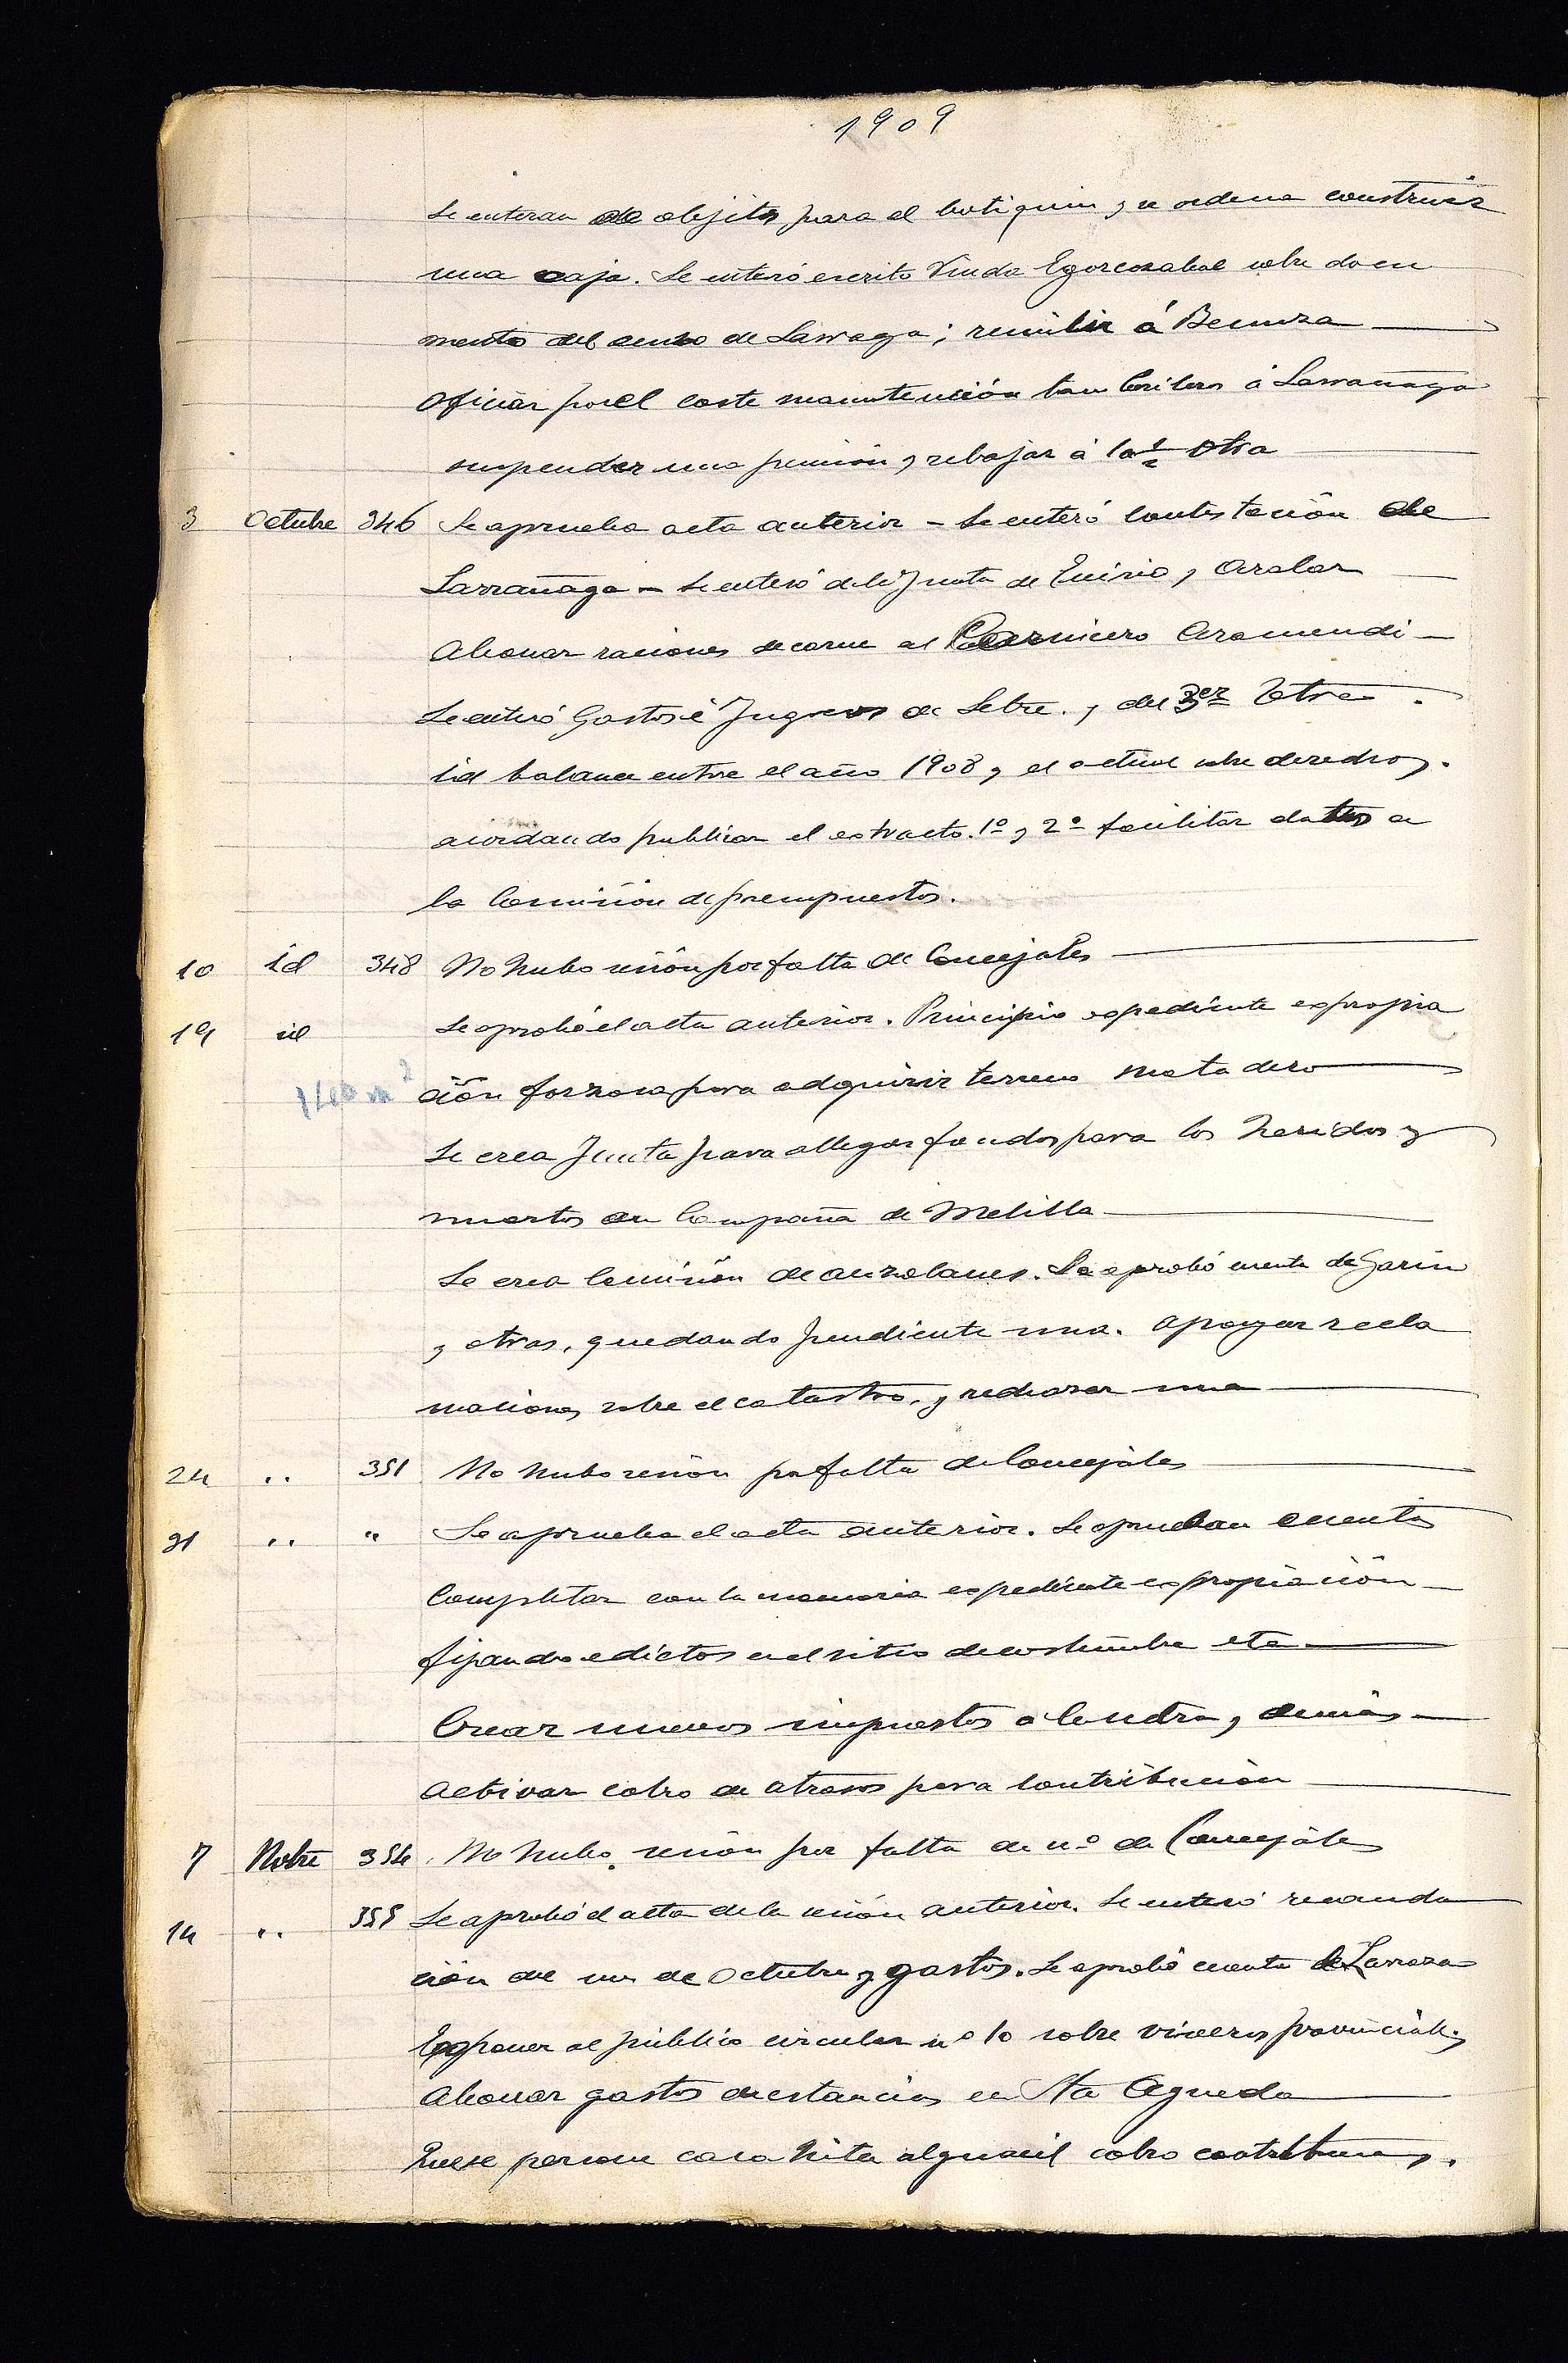 1909
Se enteran de objetos para el botiquin y se ordena construir
una caja. Se enteró escrito Viuda Egorcozabal sobre docu
mento del censo de Larraga; remitir á
Oficiar por el coste manutención á Larrañaga
suspender una pensión y rebajar á la otra
3 Octubre 346 Se aprueba acta anterior - Se enteró contestación de
Larrañaga - Se enteró de la Junta de Enirio y Aralar
Abonar raciones de carne al Carnicero Aramendi -
Se enteró Gastos é Ingresos de Setre. y del 3er Tetre.
id balance entre el año 1908 y el actual sobre derechos.
acordando publicar el extracto. 1º y 2º facilitar datos a
la Comisión de presupuestos.
10 id 348 No hubo sesión por falta de Concejales
19 id Se aprobó el acta anterior. Principio expediente expropia
140 m2 ción forzosa para adquirir terreno matadero
Se crea Junta para allegar fondos para los heridos y
muertos en Campaña de Melilla
Se crea Comisión de Se aprobó cuenta de Garin
y otras, quedando pendiente una. Apoyar recla
maciones sobre el catastro, y rechazar una
24 " 351 No hubo sesión por falta de Concejales
31 " " Se aprueba el acta anterior. Se aprueban cuentas
Completar con la memoria expediente expropiación
fijando edictos en el sitio de costumbre etc
Crear nuevos impuestos a y demás
Activar cobro de atrasos para contribución
7 Nobre 354 No hubo sesión por falta de nº de Concejales
14 " 355 Se aprobó el acta de la sesión anterior. Se enteró recauda
ción del mes de Octubre y gastos. Se aprobó cuenta de Larraza
Exponer al público circular nº 10 sobre viveros provinciales
Abonar gastos de estancias en Sta Agueda
persone casa hita alguacil cobro contribucion.